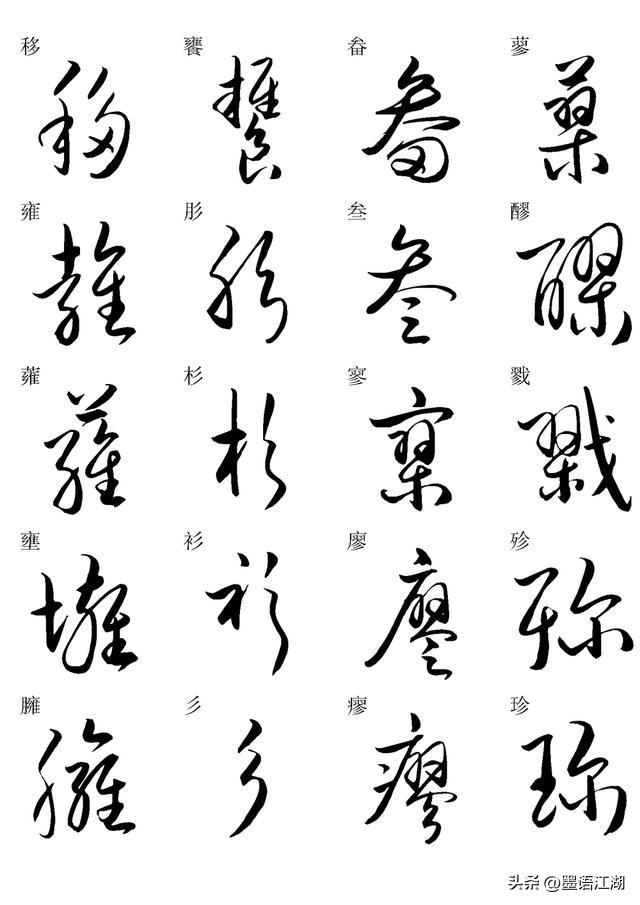 移 饔 畚 蓼
雍 肜 叁 醪
蕹 杉 寥 戮
壅 衫 廖 殄
臃 彡 瘳 珍
头条 @墨语江湖